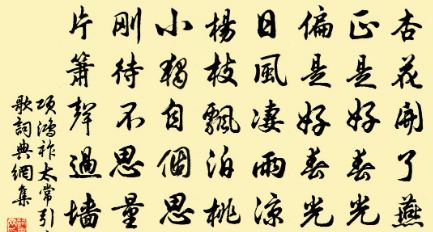 杏花開了燕
正是好春光
偏是好春光
日風淒雨涼
楊枝飄泊桃
小獨自個思
剛待不思量
片簫聲過墻
項鴻祚太常引
歌詞典網集